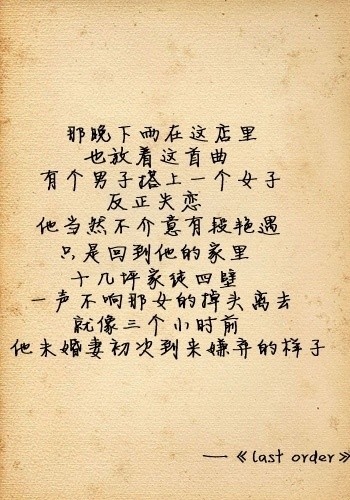 那晚下雨在这店里
也放着这首曲
有个男子搭上一个女子
反正失恋
他当然不介意有段艳遇
只是回到他的家里
十几坪家徒四壁
一声不响那女的掉头离去
就像三个小时前
他未婚妻初次到来嫌弃的样子
——《last order》